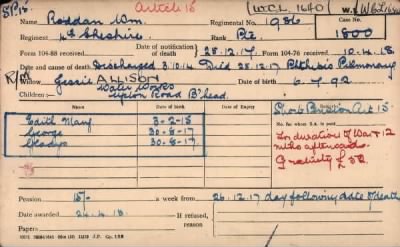 S.P.18. Article 16 (W.C.L. 1640)
Name Roddan Wm. Regimental No. 1986 Case No.
Regiment 4th Cheshire. Rank Pte. 1800
Form 104-88 received Date of notification of death 28.12.17. Form 104-76 received 10.4.18.
Date and cause of death Discharged 3.10.14 Died 25.12.17 Phthisis Pulmonary
R/M
Widow Jessie ALLISON Date of birth 6.7.92
Water Works
Children: Upton Road B'head.
Name Date of Birth Date of Expiry
Edith Mary 3-2-15
George 30-8-17
Gladys 30-8-17
Short Pension Art 15
Date from which S.A. is paid
For duration of War & 12
mths afterwards.
Gratuity £
Pension 15/- a week from 26.12.17 day following date of death
Date awarded 24.4.18. If refused, reason
Papers